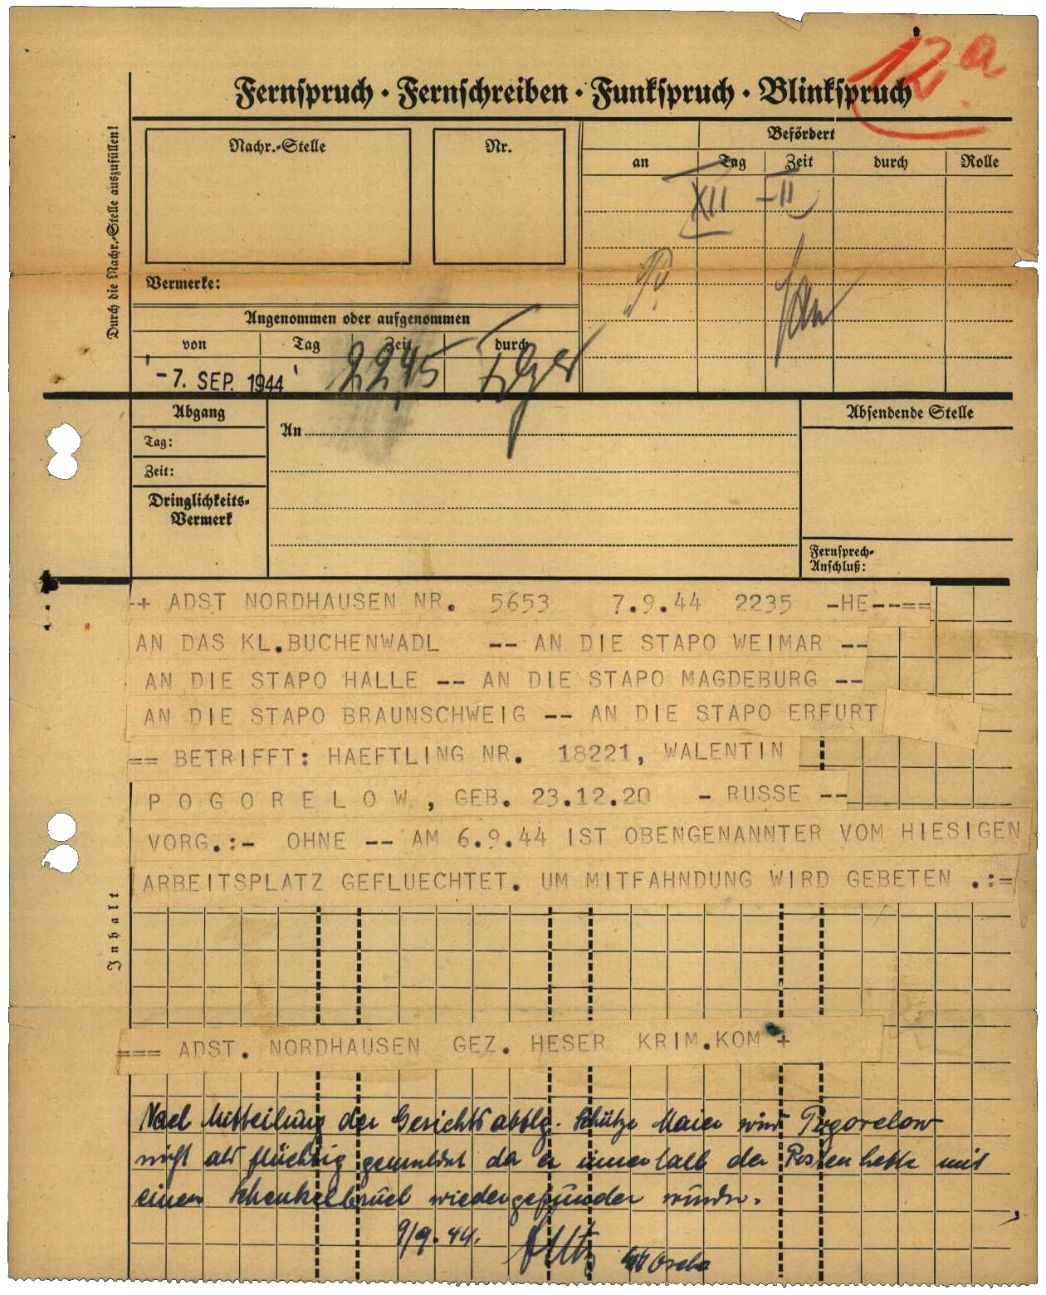 12a
Fernspruch · Fernschreiben · Funkspruch · Blinkspruch
Durch die Nachr.-Stelle auszufüllen!
Nachr.-Stelle
Nr.
Befördert
an Tag Zeit durch Rolle
XII - II
Vermerke:
Angenommen oder aufgenommen
von Tag Zeit durch
-7. SEP. 1944 2245
Abgang
Tag:
Zeit:
Dringlichkeits-
Vermerk
An
Absendende Stelle
Fernsprech-
Anschluß:
-+ ADST NORDHAUSEN NR. 5653 7.9.44 2235 -HE--==
AN DAS KL.BUCHENWADL -- AN DIE STAPO WEIMAR --
AN DIE STAPO HALLE -- AN DIE STAPO MAGDEBURG --
AN DIE STAPO BRAUNSCHWEIG -- AN DIE STAPO ERFURT
== BETRIFFT: HAEFTLING NR. 18221, WALENTIN
P O G O R E L O W , GEB. 23.12.20 - RUSSE --
VORG.:- OHNE -- AM 6.9.44 IST OBENGENANNTER VOM HIESIGEN
ARBEITSPLATZ GEFLUECHTET. UM MITFAHNDUNG WIRD GEBETEN .:=
Inhalt
=== ADST. NORDHAUSEN GEZ. HESER KRIM.KOM +
Nach Mitteilung der Gerichtsabtlg. Schütze Maier wird Pogorelow
nicht als flüchtig gemeldet da er innerhalb der Postenkette mit
einem Schenkelbruch wiedergefunden wurde.
9/9.44.